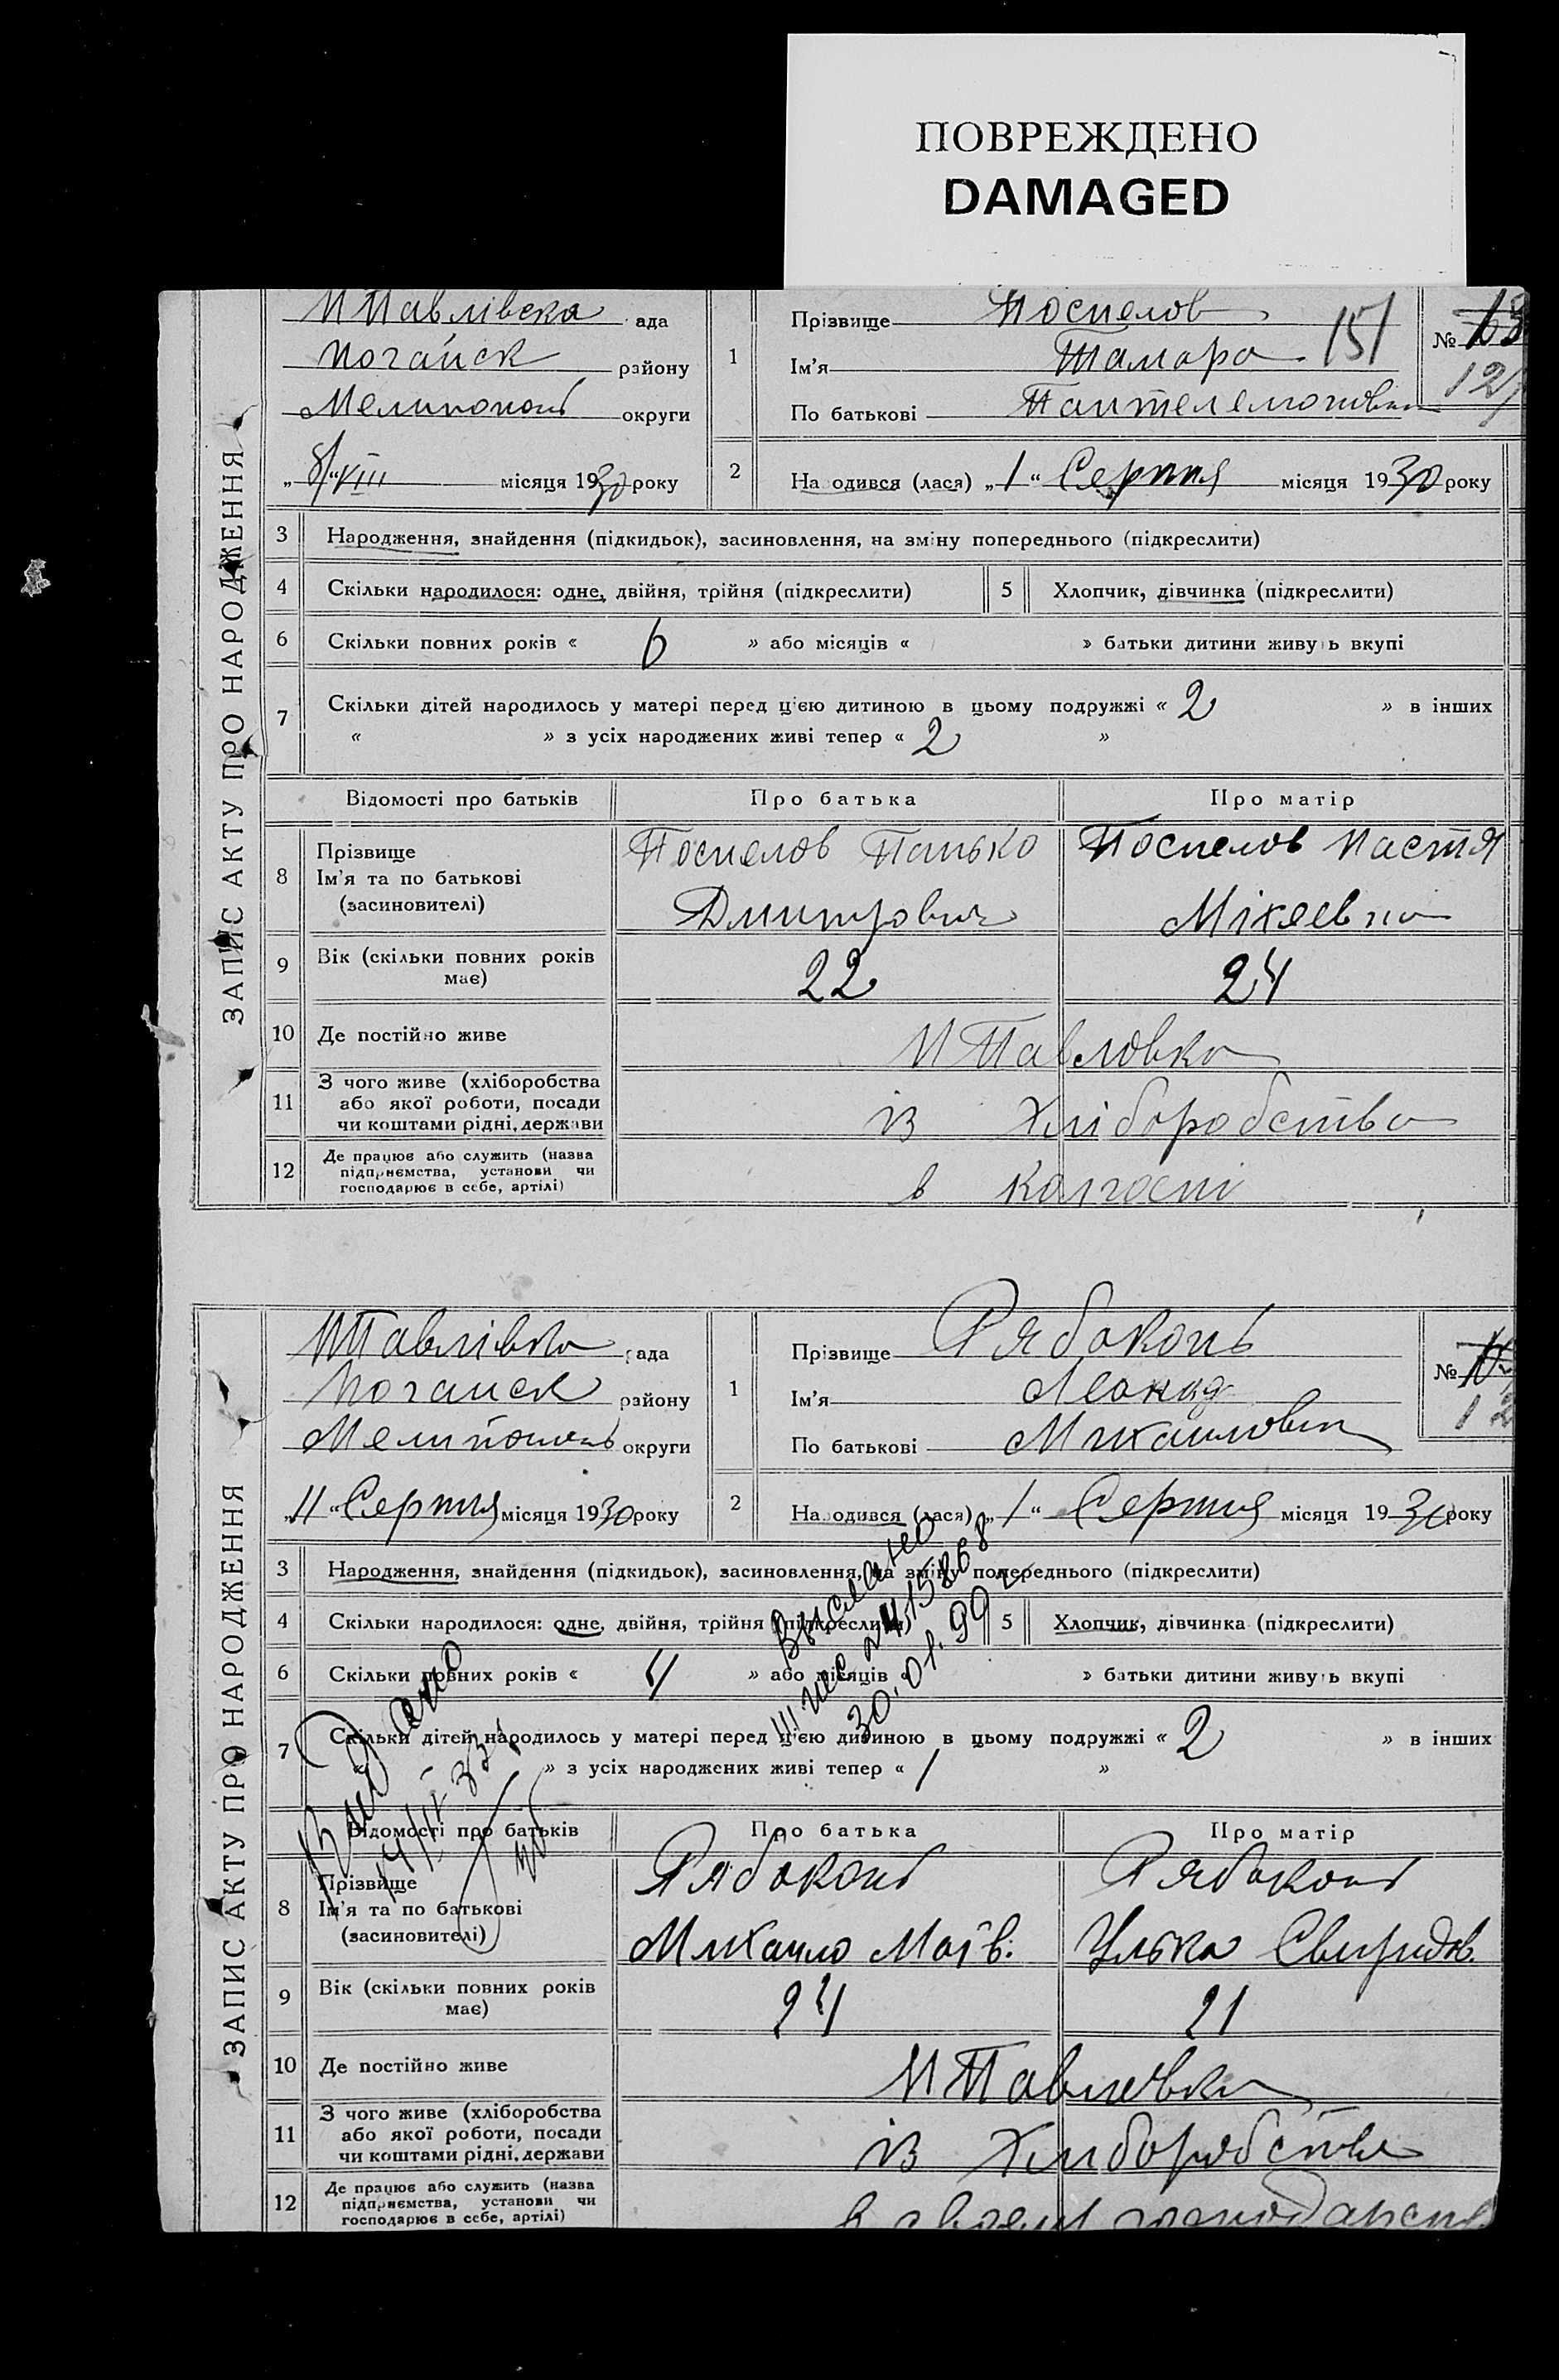 ПОВРЕЖДЕНО
DAMAGED
ЗАПИС АКТУ ПРО НАРОДЖЕННЯ
Н Павлівска ада
Ногайск району
Мелитополь округи
„8/“ VIII місяця 1930 року
1
Прізвище Поспелов
Ім'я Тамара 151
По батькові Пантелемоновна
№
2
На одився (лася) „1“ Серпня місяця 1930 року
3 Народження, знайдення (підкидьок), засиновлення, на зміну попереднього (підкреслити)
4 Скільки народилося: одне, двійня, трійня (підкреслити) 5 Хлопчик, дівчинка (підкреслити)
6 Скільки повних років « 6 » або місяців « » батьки дитини живу ь вкупі
7 Скільки дітей народилось у матері перед цією дитиною в цьому подружжі « 2 » в інших
« » з усіх народжених живі тепер « 2 »
Відомості про батьків Про батька Про матір
8 Прізвище
Ім'я та по батькові
(засновителі)
Поспелов Панько
Дмитрович
Поспелов Настя
Міхеевна
9 Вік (скільки повних років
має)
22 24
10 Де постійно живе Н Павловка
11 З чого живе (хліборобства
або якої роботи, посади
чи коштами рідні, держави
із Хліборобства
12 Де працює або служить (назва
підприємства, установи чи
господарює в себе, артілі)
в колгоспі
ЗАПИС АКТУ ПРО НАРОДЖЕННЯ
Н Павлівка рада
Ногайск району
Мелитополь округи
„11“ Серпня місяця 1930 року
1
Прізвище Рябоконь
Ім'я Леонид
По батькові Михайлович
№
2
На одився (лася) „1“ Серпня місяця 1930 року
3 Народження, знайдення (підкидьок), засиновлення, на зміну попереднього (підкреслити)
4 Скільки народилося: одне, двійня, трійня (підкреслити) 5 Хлопчик, дівчинка (підкреслити)
6 Скільки повних років « 4 » або місяців « » батьки дитини живу ь вкупі
7 Скільки дітей народилось у матері перед цією дитиною в цьому подружжі « 2 » в інших
» з усіх народжених живі тепер « 1 »
Выслано
30.01.99
Видано
Відомості про батьків Про батька Про матір
8 Прізвище
Ім'я та по батькові
(засиновителі)
Рябоконь
Михайло Моїв.
Рябоконь
Улька Свиридов.
9 Вік (скільки повних років
має)
24 21
10 Де постійно живе Н Павловка
11 З чого живе (хліборобства
або якої роботи, посади
чи коштами рідні, держави
із Хліборобства
12 Де працює або служить (назва
підприємства, установи чи
господарює в себе, артілі)